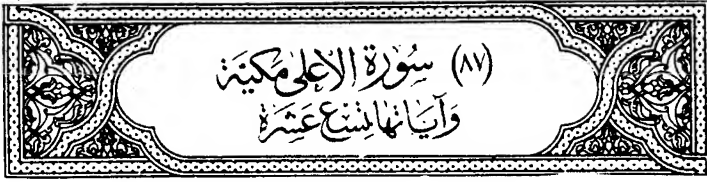 (٨٧) سُورَة الأعلى مكيّة
وَآيَاتهَا تِسْع عَشَرَة